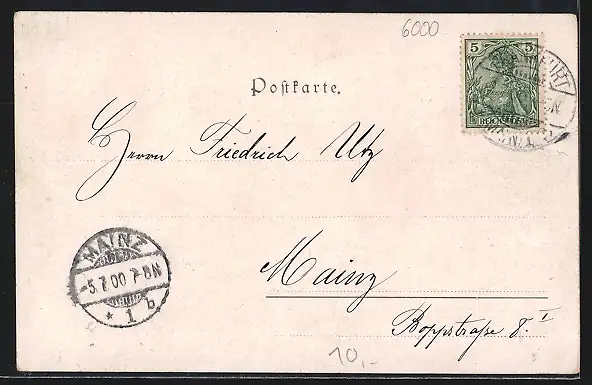 6000
5
REICHSPOST
Postkarte.
Herrn Friedrich Utz
MAINZ
-5.7.00 7-8N
* 1 b
Mainz
Boppstraße 8. I
10,-